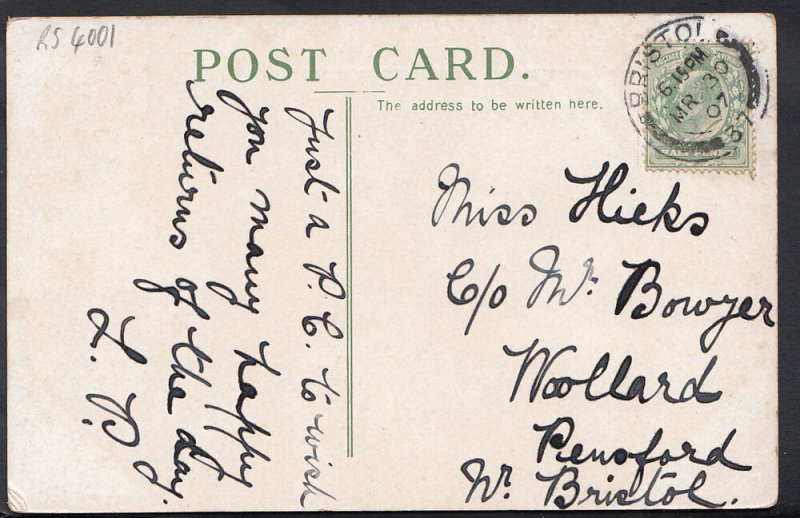 RS 4001
POST CARD.
The address to be written here.
BRISTOL
6.15PM
MR 30
07
37
HALF PENNY
Just a P.C. to wish
you many happy
returns of the day.
L. B.
Miss Hicks
C/o Mr. Bowyer
Woollard
Pensford
Nr. Bristol.